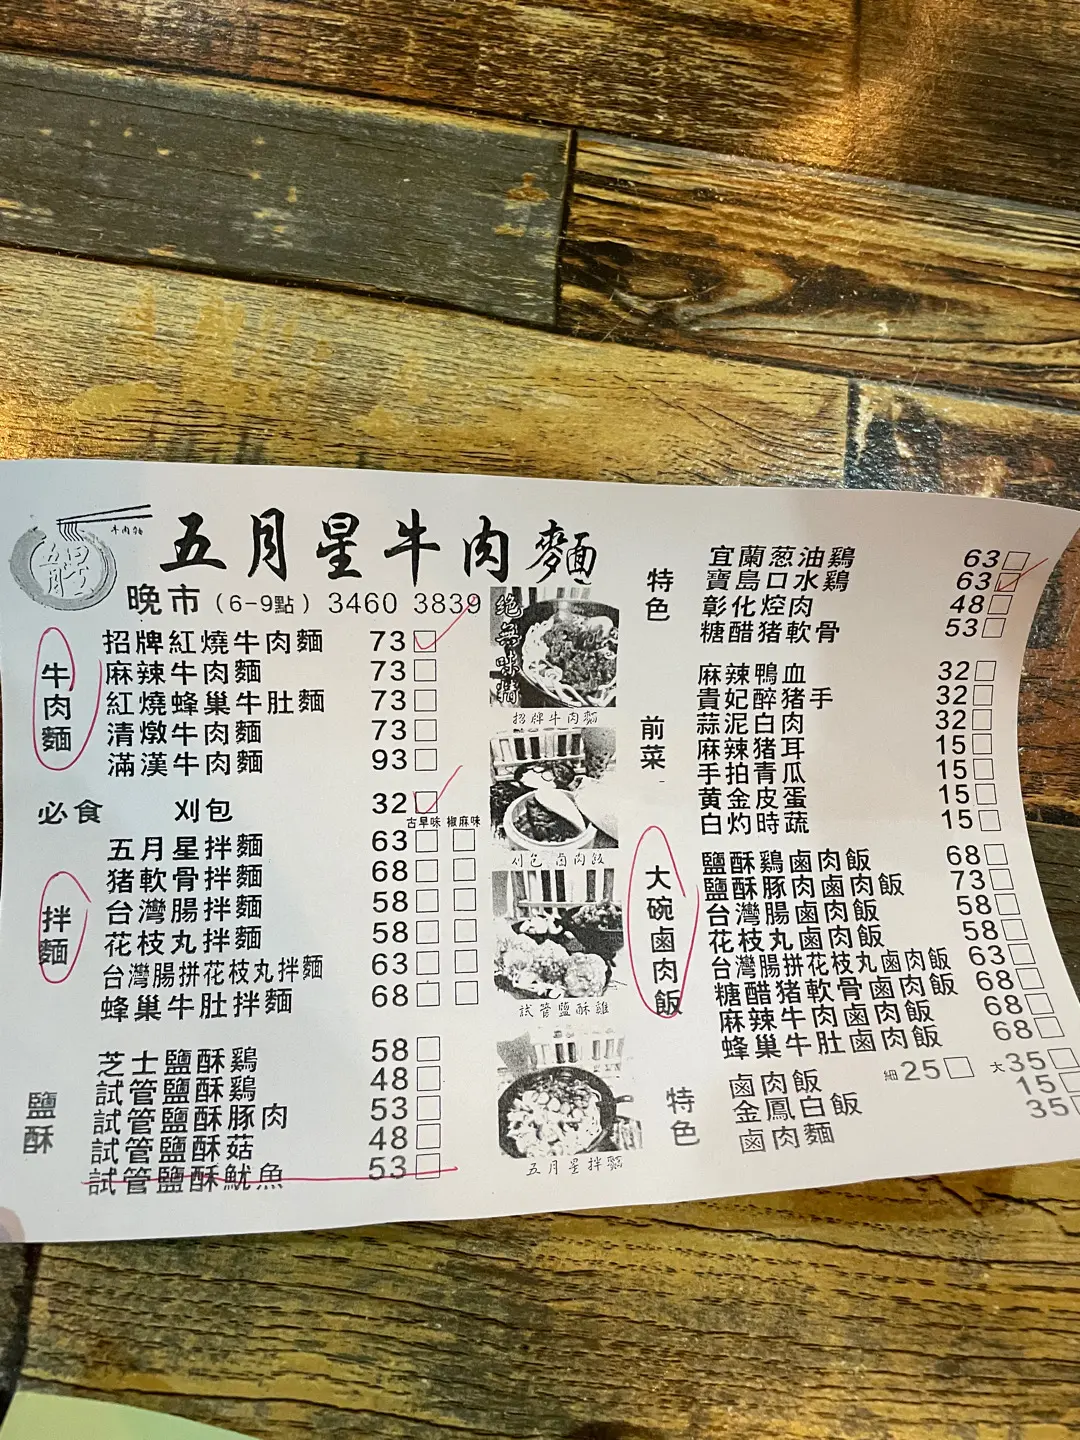 五月星牛肉麵
牛肉麵
五月星
晚市（6-9點）3460 3839
牛肉麵
招牌紅燒牛肉麵 73
麻辣牛肉麵 73
紅燒蜂巢牛肚麵 73
清燉牛肉麵 73
滿漢牛肉麵 93
必食 刈包 32
古早味 椒麻味
拌麵
五月星拌麵 63
猪軟骨拌麵 68
台灣腸拌麵 58
花枝丸拌麵 58
台灣腸拼花枝丸拌麵 63
蜂巢牛肚拌麵 68
鹽酥
芝士鹽酥鷄 58
試管鹽酥鷄 48
試管鹽酥豚肉 53
試管鹽酥菇 48
試管鹽酥魷魚 53
招牌牛肉麵
刈包 鹵肉飯
試管鹽酥雞
五月星拌麵
特色
宜蘭葱油鷄 63
寶島口水鷄 63
彰化焢肉 48
糖醋猪軟骨 53
前菜
麻辣鴨血 32
貴妃醉猪手 32
蒜泥白肉 32
麻辣猪耳 15
手拍青瓜 15
黄金皮蛋 15
白灼時蔬 15
大碗鹵肉飯
鹽酥鷄鹵肉飯 68
鹽酥豚肉鹵肉飯 73
台灣腸鹵肉飯 58
花枝丸鹵肉飯 58
台灣腸拼花枝丸鹵肉飯 63
糖醋猪軟骨鹵肉飯 68
麻辣牛肉鹵肉飯 68
蜂巢牛肚鹵肉飯 68
特色
鹵肉飯 細25 大35
金鳳白飯 15
鹵肉麵 35